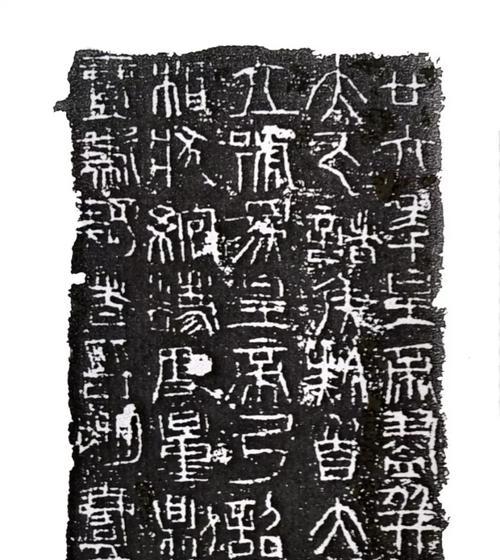 廿六年皇帝盡并
天下諸侯黔首大
立號為皇帝乃詔
相狀綰灋度量則
壹歉疑者皆明壹